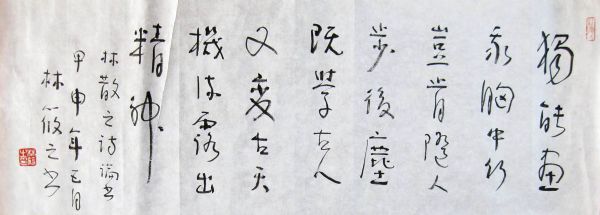 獨能畫
我胸中竹
豈肯隨人
步後塵
既學古人
又變古天
機流露出
精神
林散之詩論書
甲申年月
林筱之書